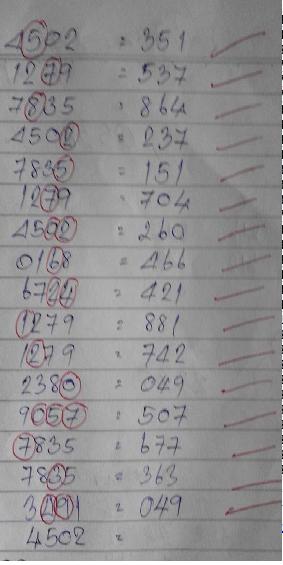 4502 = 351
1279 = 537
7835 = 864
4502 = 237
7835 = 151
1279 = 704
4592 = 260
0168 = 466
6724 = 421
1279 = 881
1279 = 742
2380 = 049
9057 = 507
7835 = 677
7835 = 363
3491 = 049
4502 =